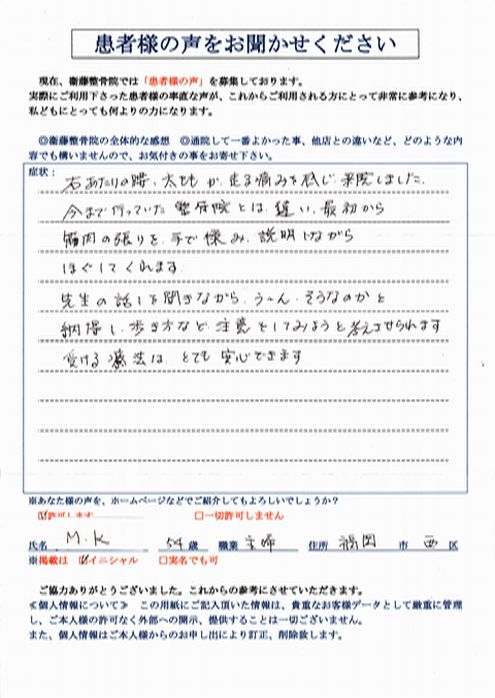 患者様の声をお聞かせください
現在、衛藤整骨院では「患者様の声」を募集しております。
実際にご利用下さった患者様の率直な声が、これからご利用される方にとって非常に参考になり、
私どもにとっても何よりの力になります。
◎衛藤整骨院の全体的な感想　◎通院して一番よかった事、他店との違いなど、どのような内
容でも構いませんので、お気付きの事をお寄せ下さい。
症状：
右あたりの腰、太ももが、走る痛みを感じ来院しました。
今まで行っていた整骨院とは、違い、最初から
筋肉の張りを、手で揉み、説明しながら
ほぐしてくれます
先生の話しを聞きながら、う〜ん、そうなのかと
納得し、歩き方など注意をしてみようと考えさせられます
受ける療法は、とても安心できます
※あなた様の声を、ホームページなどでご紹介してもよろしいでしょうか？
☑許可します　□一切許可しません
氏名　M.K　54歳　職業　主婦　住所　福岡　市　西　区
※掲載は　☑イニシャル　□実名でも可
ご協力ありがとうございました。これからの参考にさせていただきます。
≪個人情報について≫　この用紙にご記入頂いた情報は、貴重なお客様データとして厳重に管理
し、ご本人様の許可なく外部への開示、提供することは一切ございません。
また、個人情報はご本人様からのお申し出により訂正、削除致します。